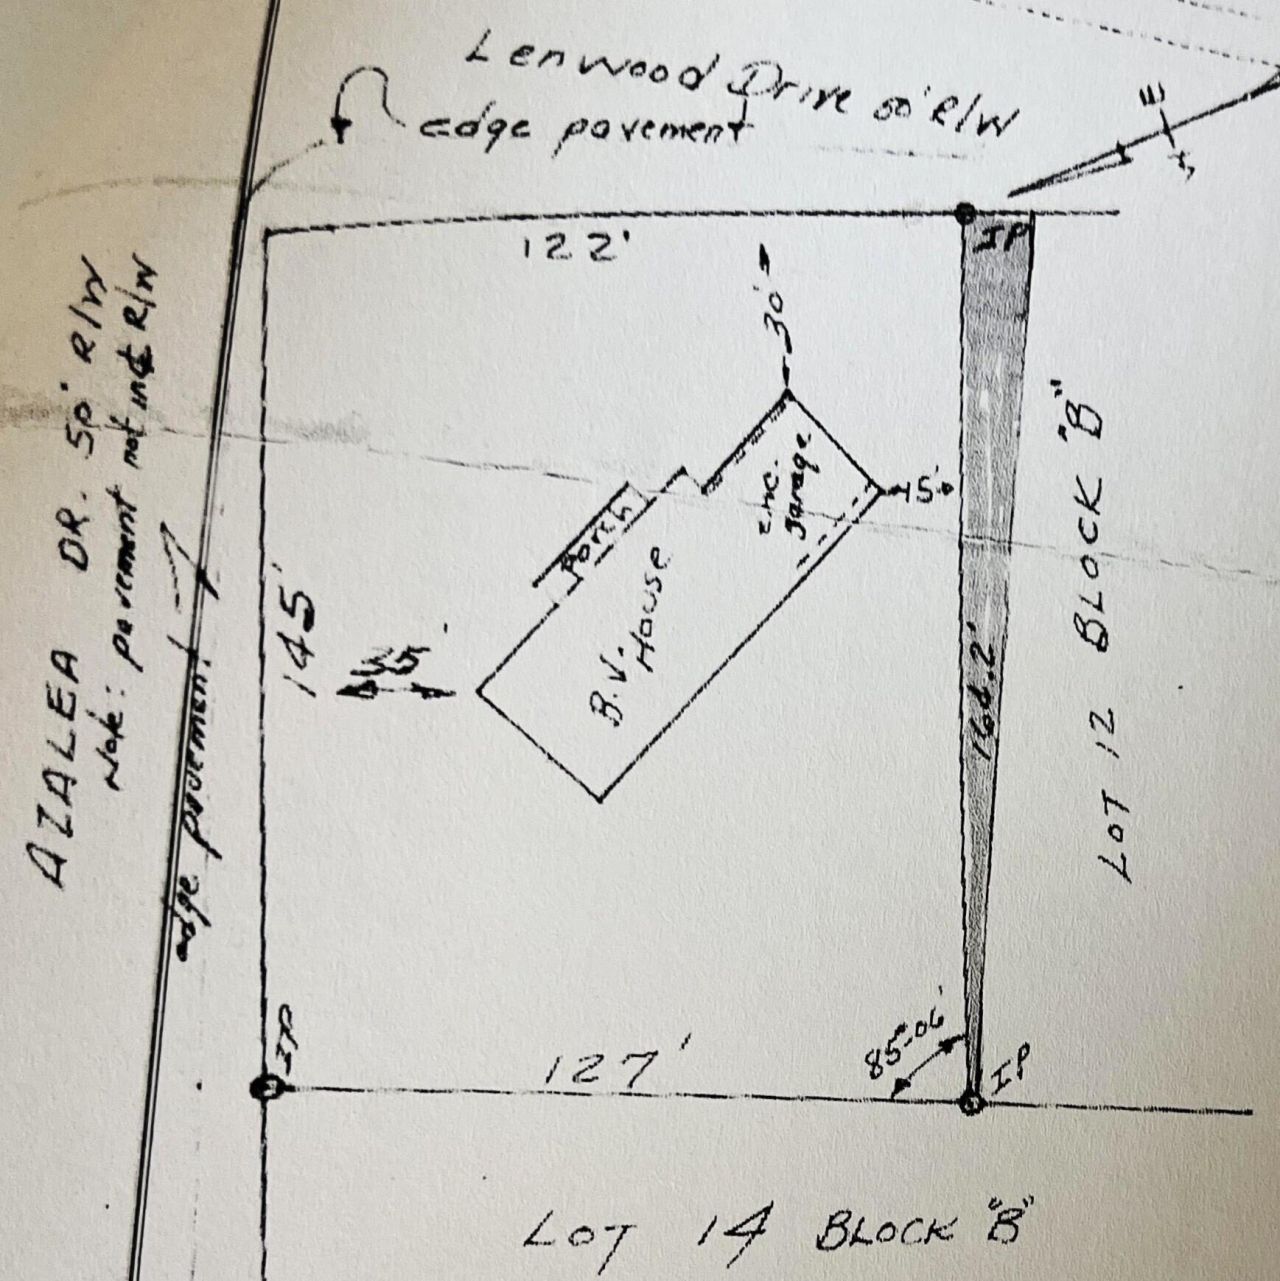 Lenwood Drive 50' R/W
edge pavement
IP
122'
30'
AZALEA DR. 50' R/W
Note: pavement not in ⅊ R/W
edge pavement
145'
35'
Porch
B.V. House
enc. garage
15'
LOT 12 BLOCK "B"
IP
127'
85°-06'
IP
LOT 14 BLOCK "B"